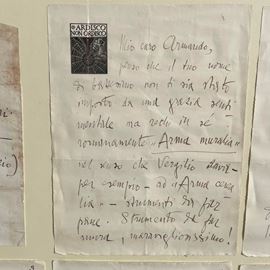 ARDISCO
NON ORDISCO
Mio caro Armando,
penso che il tuo nome
di battesimo non ti sia stato
imposto da una grazia senti-
mentale ma rechi in sé
romanamente "Arma
nel senso che Vergilio
per sempre - ad "Arma
lia" - strumenti da far
pane. Strumento da far
maravigliosissimo!